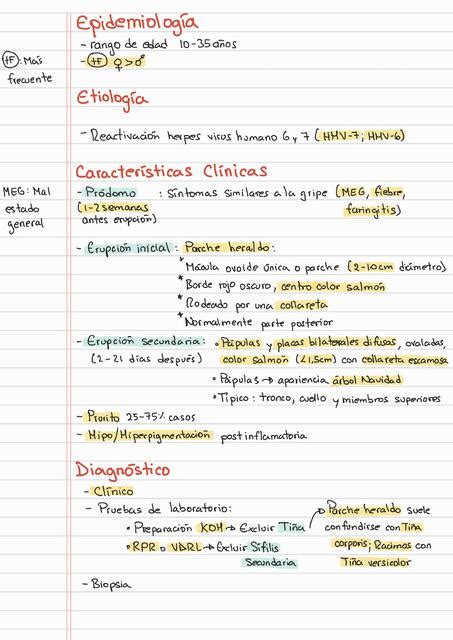 Epidemiología
- rango de edad 10-35 años
(+F): Más frecuente
- (+F) ♀ > ♂
Etiología
- Reactivación herpes virus humano 6 y 7 (HHV-7; HHV-6)
Características Clínicas
MEG: Mal estado general
- Pródomo : Síntomas similares a la gripe (MEG, fiebre,
(1-2 semanas faringitis)
antes erupción)
- Erupción inicial : Parche heraldo:
* Mácula ovoide única o parche (2-10cm diámetro)
* Borde rojo oscuro, centro color salmón
* Rodeado por una collareta
* Normalmente parte posterior
- Erupción secundaria: • Pápulas y placas bilaterales difusas, ovaladas,
(2-21 días después) color salmón (<1,5cm) con collareta escamosa
• Pápulas → apariencia árbol Navidad
• Típico: tronco, cuello y miembros superiores
- Prurito 25-75% casos
- Hipo/Hiperpigmentación postinflamatoria
Diagnóstico
- Clínico
- Pruebas de laboratorio:
• Preparación KOH → Excluir Tiña
• RPR o VDRL → Excluir Sífilis
Secundaria
• Parche heraldo suele
confundirse con Tiña
corporis; Racimos con
Tiña versicolor
- Biopsia